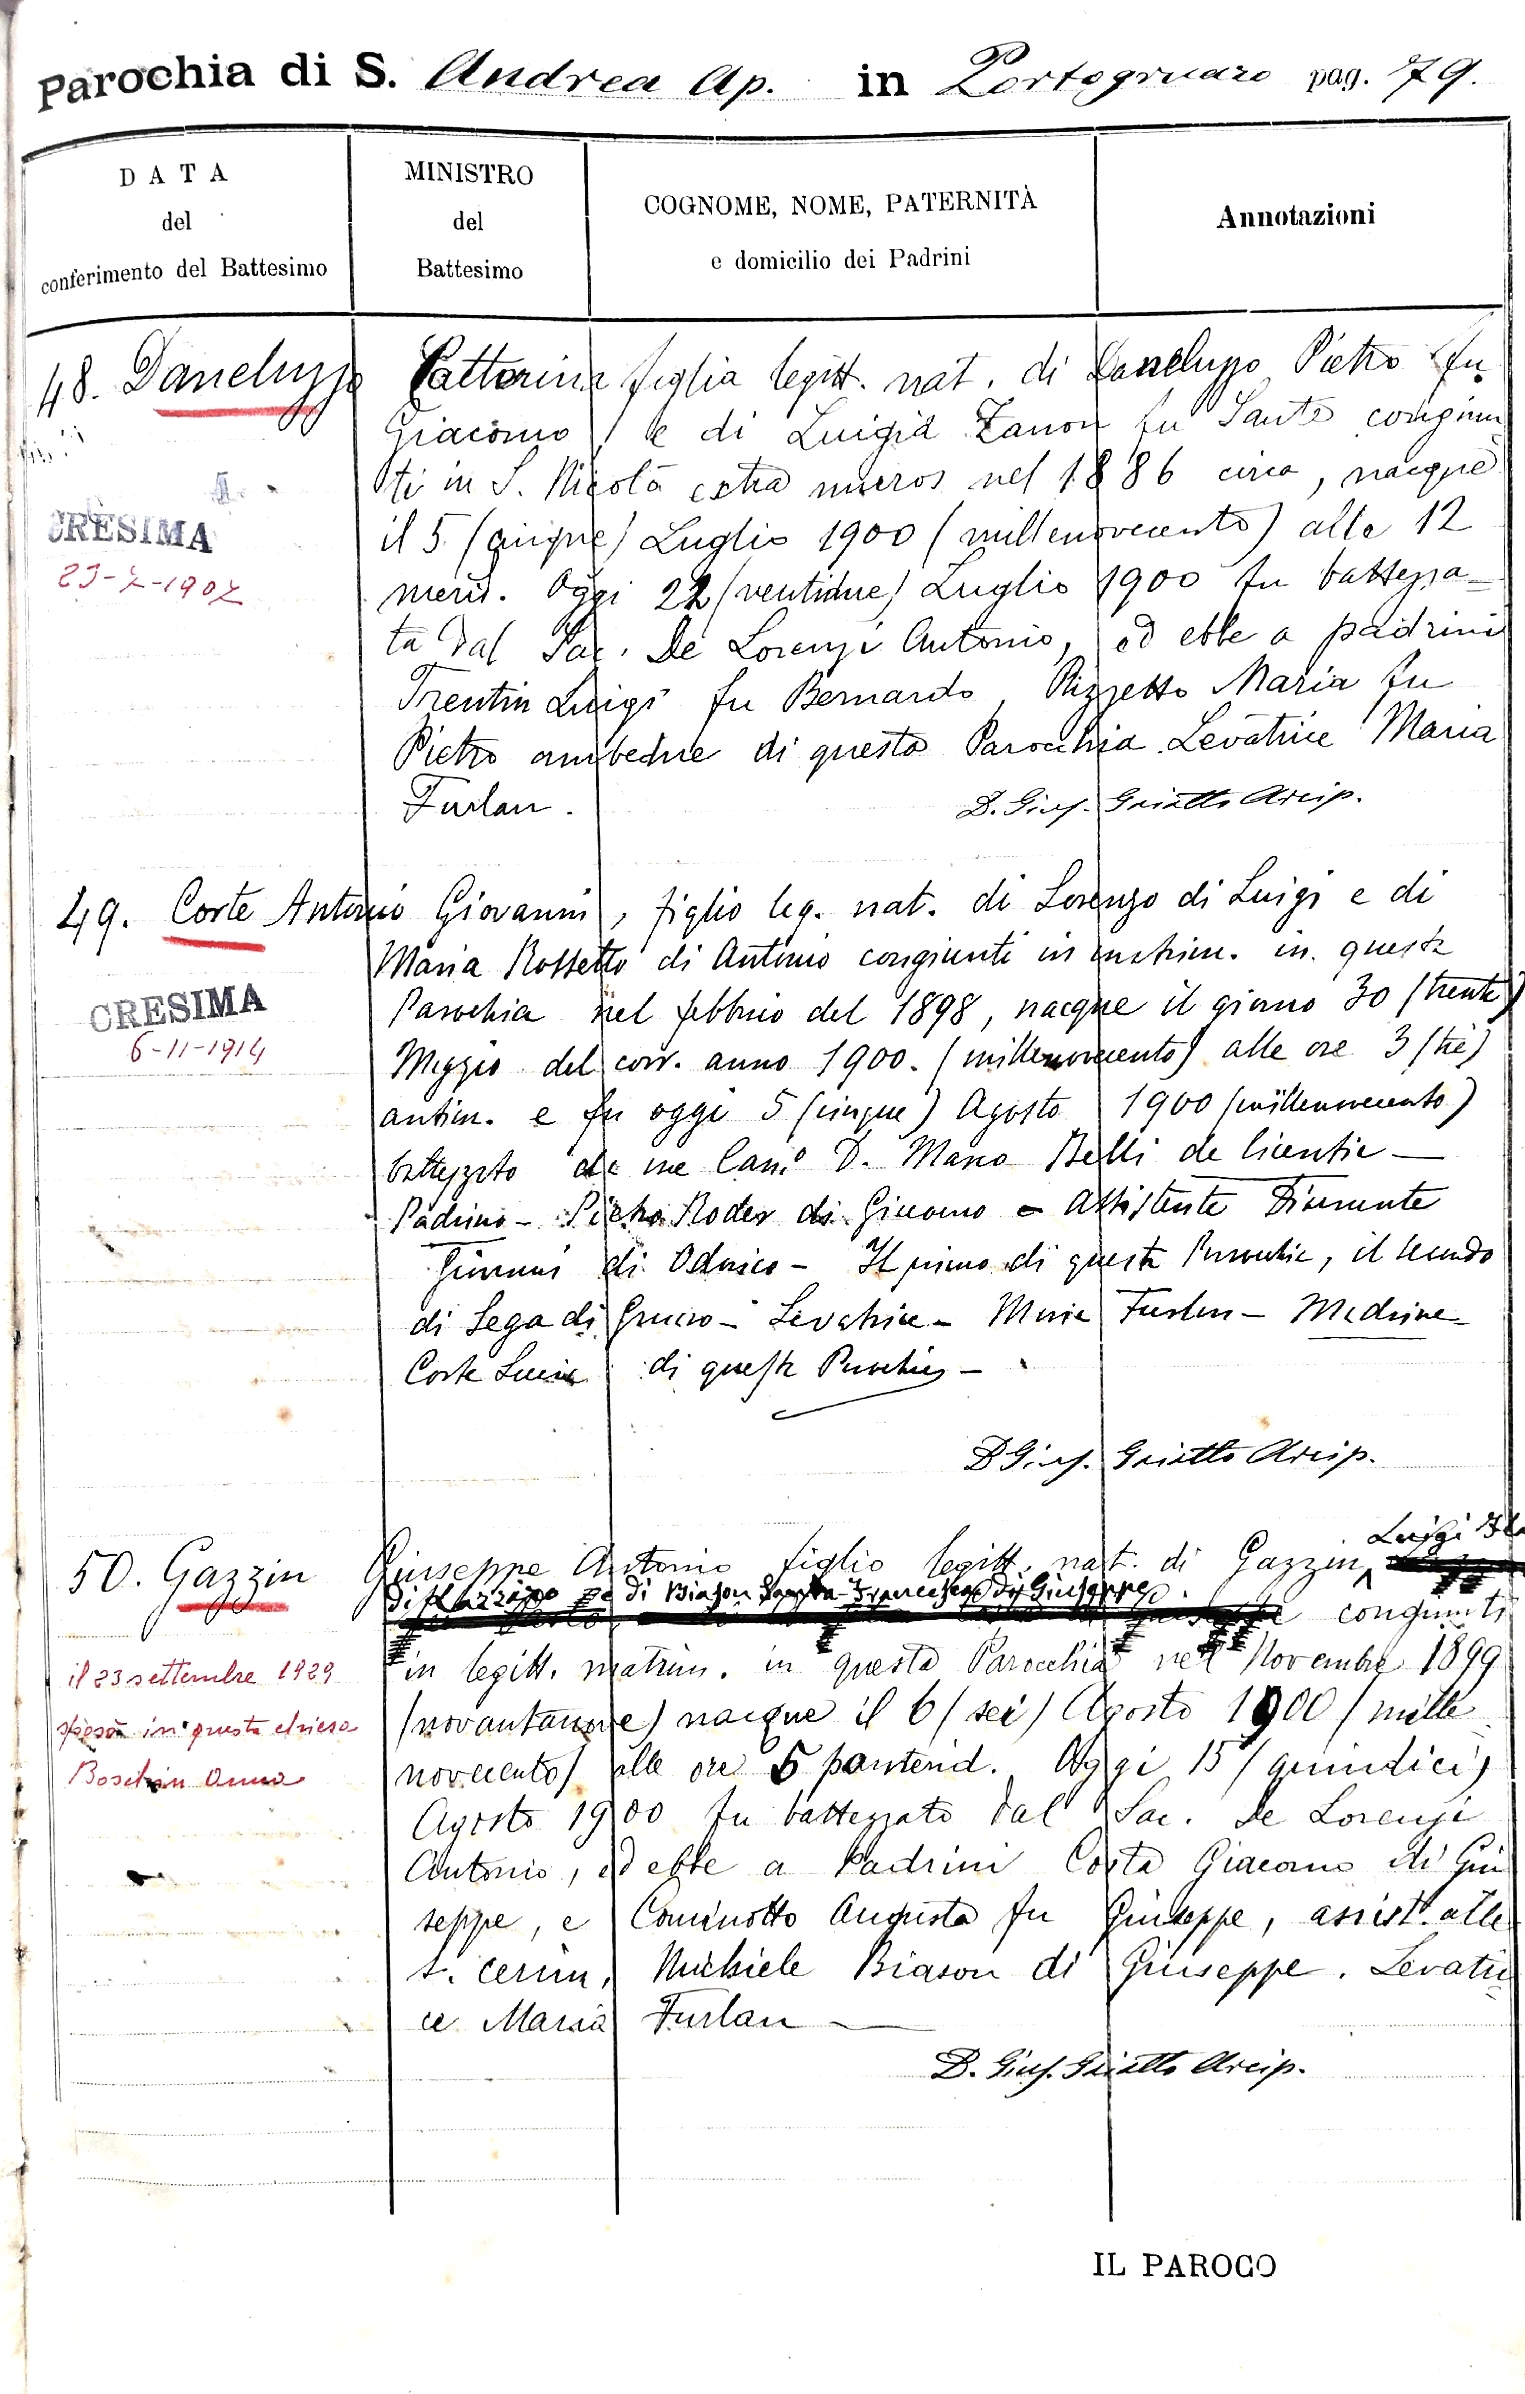 Parochia di S. Andrea Ap. in Portogruaro pag. 79.
DATA
del
conferimento del Battesimo
MINISTRO
del
Battesimo
COGNOME, NOME, PATERNITÀ
e domicilio dei Padrini
Annotazioni
48. Daneluzzo Catterina figlia legitt. nat. di Daneluzzo Pietro fu
Giacomo, e di Luigia Zanon fu Sante congiun
ti in S. Nicolà extra muros nel 1886 circa, nacque
il 5 (cinque) Luglio 1900 (millenovecento) alle 12
merid. Oggi 22 (ventidue) Luglio 1900 fu battezza-
ta dal Sac. De Lorenzi Antonio, ed ebbe a padrini
Trentin Luigi fu Bernardo, Rizzetto Maria fu
Pietro ambedue di questa Parocchia Levatrice Maria
Furlan.
D. Gius. Griatto Arcip.
CRESIMA
23-7-1907
49. Corte Antonio Giovanni, figlio leg. nat. di Lorenzo di Luigi e di
Maria Rossetto di Antonio congiunti in matrim. in questa
Parochia nel febbraio del 1898, nacque il giorno 30 (trenta)
Maggio del corr. anno 1900. (millenovecento) alle ore 3 (tre)
antim. e fu oggi 5 (cinque) Agosto 1900 (millenovecento)
battezzato da me Can.o D. Marco Belli de licentia —
Padrino - Pietro Roder di Giacomo - Assistente Diamante
Giovanni di Odorico - Il primo di questa Parochia, il secondo
di Sega di Gruaro - Levatrice - Maria Furlan - Madrina -
Corte Lucia di questa Parochia -
D Gius. Griatto Arcip.
CRESIMA
6-11-1914
50. Gazzin Giuseppe Antonio figlio legitt. nat. di Gazzin, Luigi
di Biason Francesca di Giuseppe.
congiunti
in legitt. matrim. in questa Parocchia nel Novembre 1899
(novantanove) nacque il 6 (sei) Agosto 1900 (mille
novecento) alle ore 5 pomerid. Oggi 15 (quindici)
Agosto 1900 fu battezzato dal Sac. De Lorenzi
Antonio, ed ebbe a Padrini Costa Giacomo di Giu
seppe, e Cominotto Augusta fu Giuseppe, assist. alle
s. cerim. Michiele Biason di Giuseppe. Levatri
ce Maria Furlan —
D. Gius. Griatto Arcip.
il 23 settembre 1929
sposò in questa chiesa
Boschin Anna
IL PAROCO